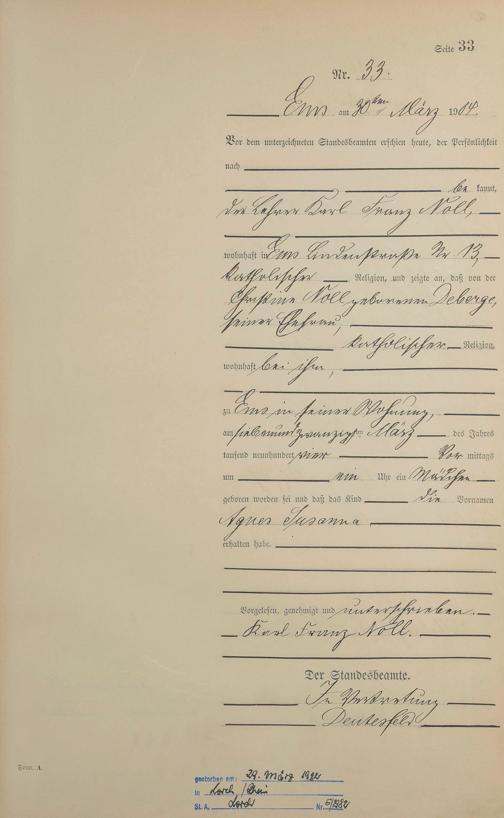 Seite 33
Nr. 33.
Ems am 30ten März 1904.
Vor dem unterzeichneten Standesbeamten erschien heute, der Persönlichkeit
nach
be kannt,
der Lehrer Karl Franz Noll,
wohnhaft in Ems Lindenstraße Nr 13,
katholischer Religion, und zeigte an, daß von der
Christine Noll geborenen Deberge,
seiner Ehefrau,
katholischer Religion,
wohnhaft bei ihm,
zu Ems in seiner Wohnung,
am siebenundzwanzigsten März des Jahres
tausend neunhundert vier Vor mittags
um ein Uhr ein Mädchen
geboren worden sei und daß das Kind die Vornamen
Agnes Susanna
erhalten habe.
Vorgelesen, genehmigt und unterschrieben.
Karl Franz Noll.
Der Standesbeamte.
In Vertretung
Deutesfeld
Form. A.
gestorben am: März
in Lorch / Rhein
St. A. Lorch Nr.